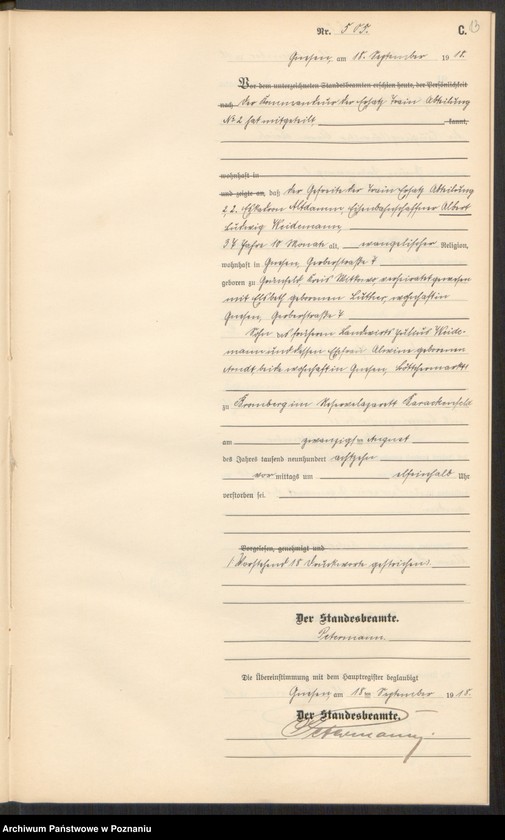 Nr. 505. C. 13
Gnesen, am 18. September 1918.
Vor dem unterzeichneten Standesbeamten erschien heute, der Persönlichkeit
nach der Kommandeur der Ersatz Train Abteilung
No 2 hat mitgeteilt, kannt,
wohnhaft in
und zeigte an, daß der Gefreite der Train Ersatz Abteilung
2, 2. Eskadron Altdamm Eisenbahnschaffner Albert
Ludwig Weidemann,
37 Jahre 10 Monate alt, evangelischer Religion,
wohnhaft in Gnesen, Gerberstraße 7
geboren zu Kreis verheiratet gewesen
mit Elsbeth geborenen Luther, wohnhaft in
Gnesen, Gerberstraße 7
Sohn des früheren Landwirts Julius Weide-
mann und dessen Ehefrau Alwine geborenen
Arndt beide wohnhaft in Gnesen,
zu Bromberg im Reservelazarett
am zwanzigsten August
des Jahres tausend neunhundert achtzehn
vor mittags um elfeinhalb Uhr
verstorben sei.
Vorgelesen, genehmigt und
/ Vorstehend 18 Druckworte gestrichen.
Der Standesbeamte.
Petermann.
Die Übereinstimmung mit dem Hauptregister beglaubigt
Gnesen, am 18ten September 1918.
Der Standesbeamte.
Petermann.
Archiwum Państwowe w Poznaniu